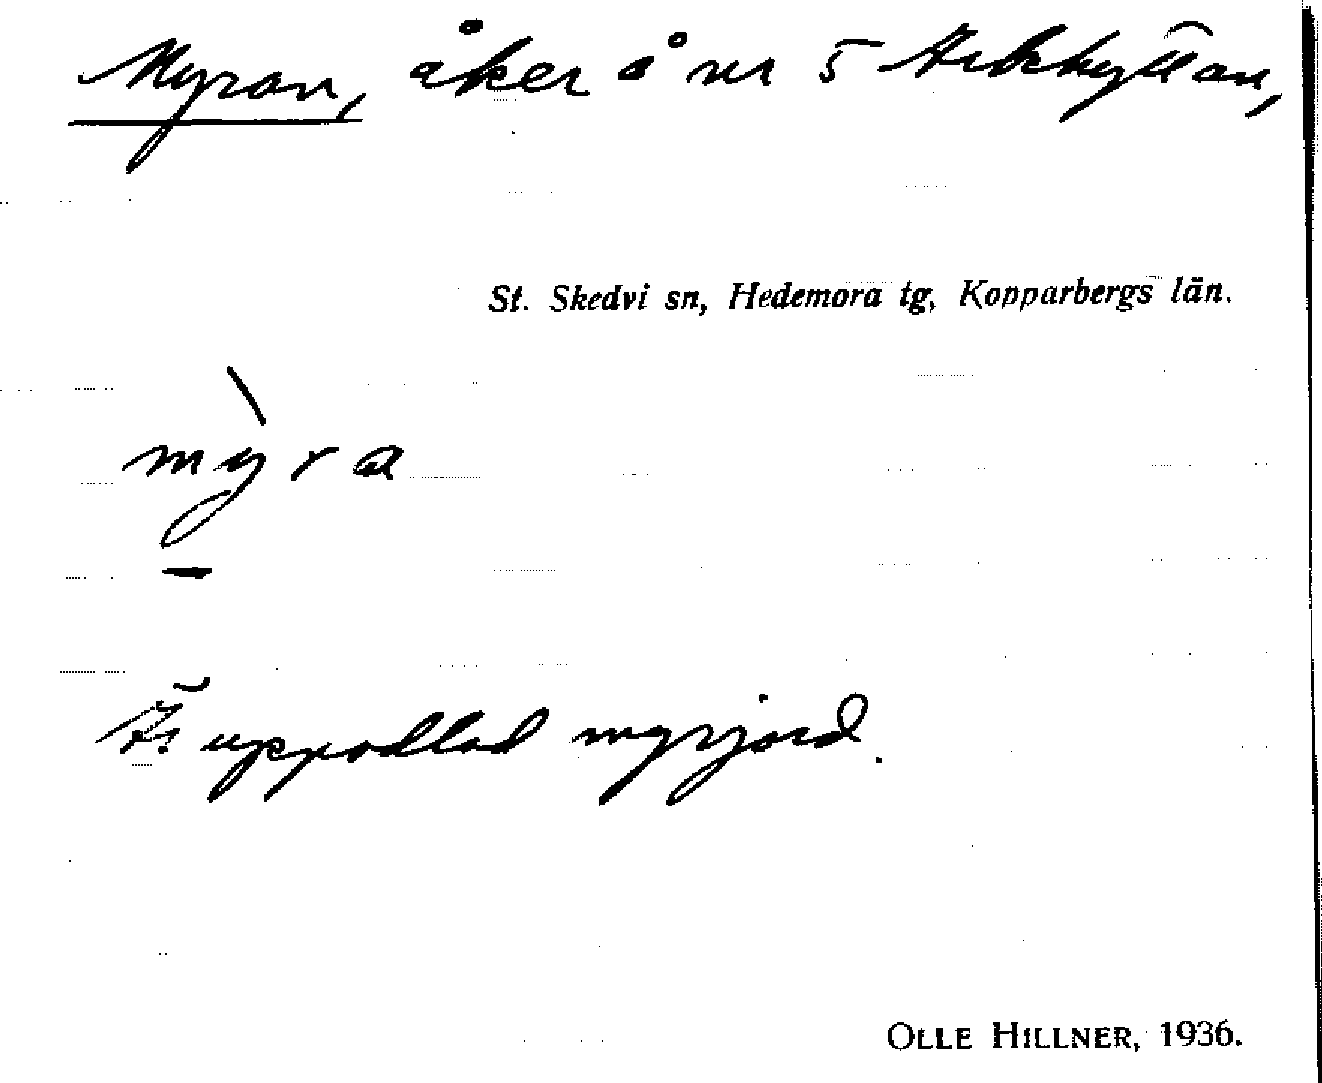 Myran, åker å nr 5 Arkhyttan,
St. Skedvi sn, Hedemora tg, Kopparbergs län.
mỳ̠ra
Är uppodlad myrjord.
OLLE HILLNER, 1936.